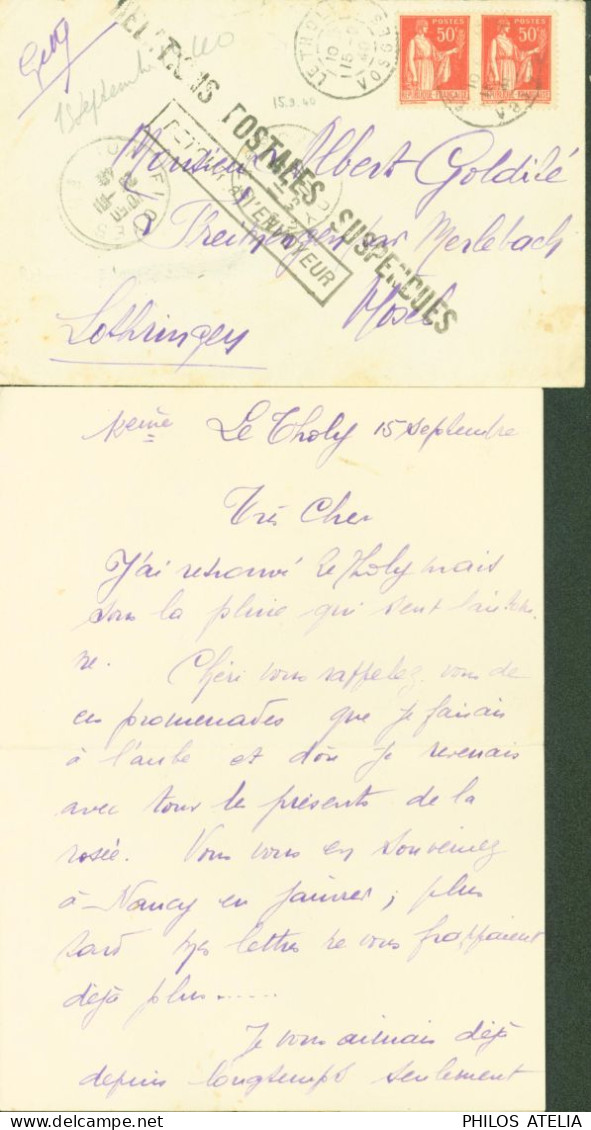 RELATIONS POSTALES SUSPENDUES
15 Septembre 40
15.9.40
LE THOLY
VOSGES
POSTES
50c
POSTES
50c
RETOUR A L'ENVOYEUR
Monsieur Albert Goldité
Freimengen par Merlebach
Mosel
Lothringen
Le Tholy 15 septembre
Très Cher
J'ai retrouvé le Tholy mais
sous la pluie qui sent
Chéri vous rappelez vous de
ces promenades que je faisais
à l'aube et d'où je revenais
avec tous les présents de la
rosée. Vous vous en souveniez
à Nancy en janvier ; plus
tard mes lettres ne vous frappaient
déjà plus......
Je vous aimais déjà
depuis longtemps seulement
PHILOS ATELIA